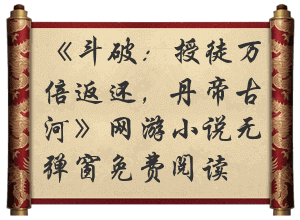 《斗破：授徒万
倍返还，丹帝古
河》网游小说无
弹窗免费阅读